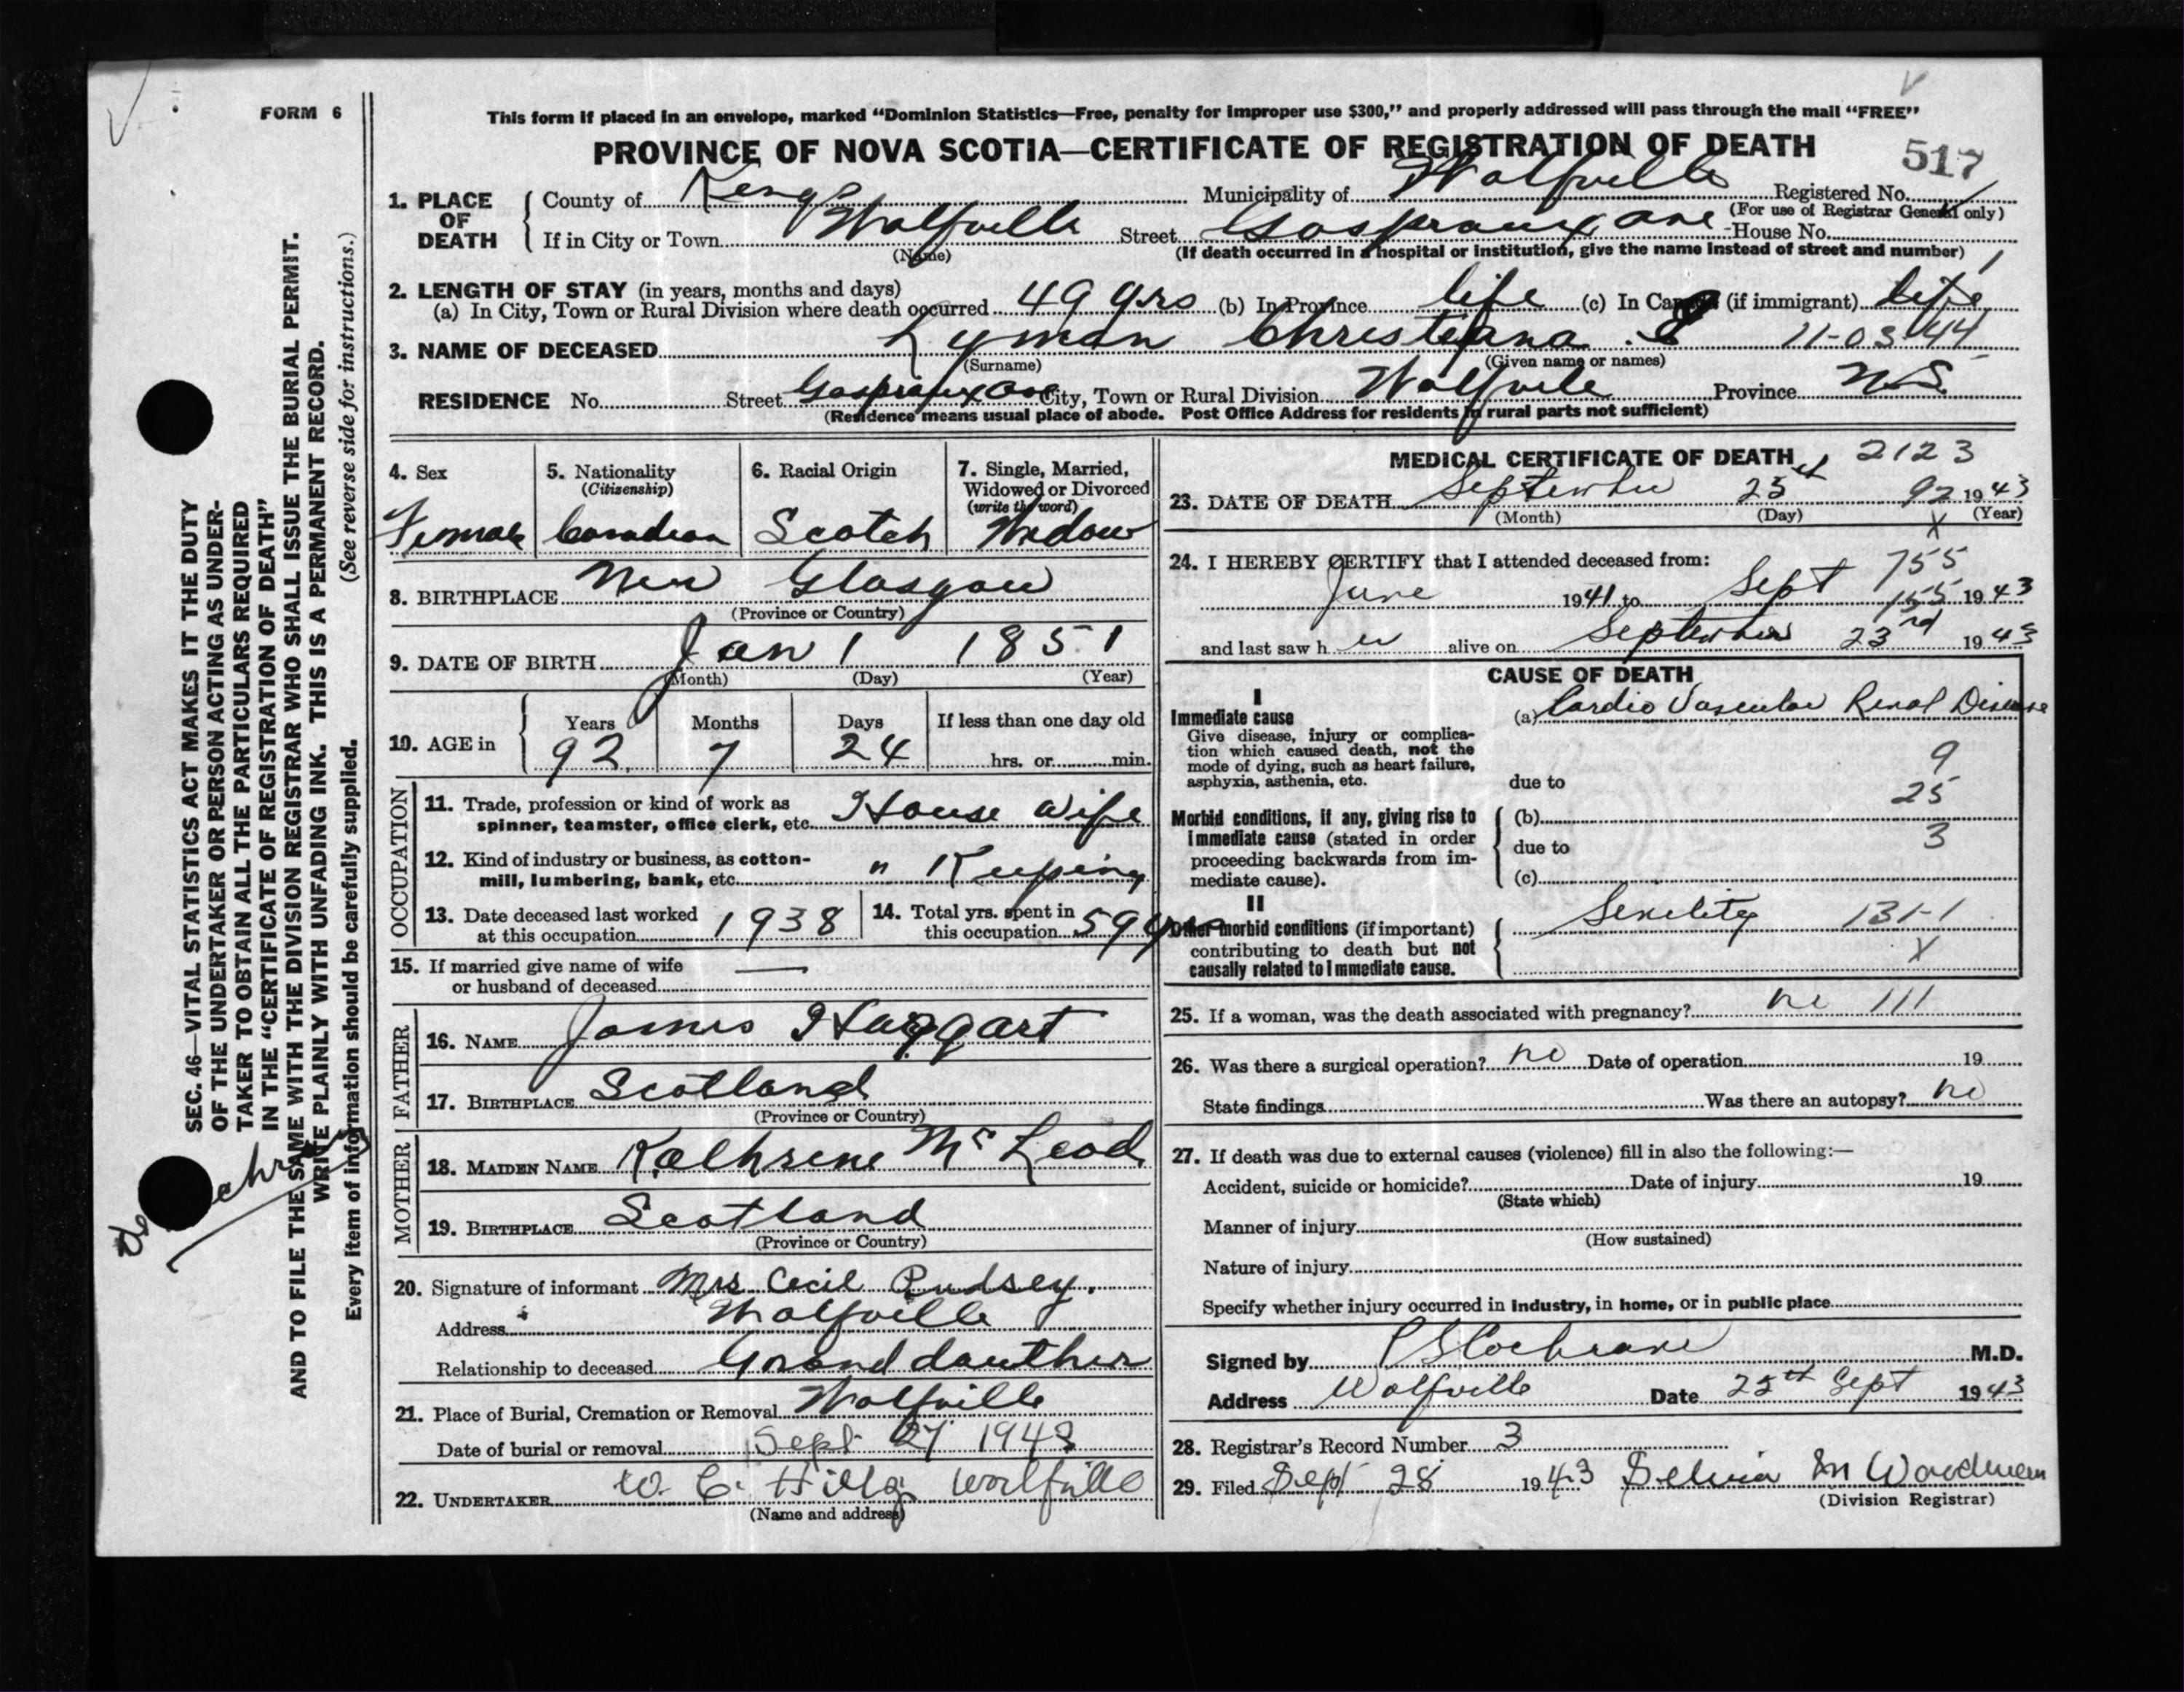 FORM 6
This form if placed in an envelope, marked “Dominion Statistics—Free, penalty for improper use $300,” and properly addressed will pass through the mail “FREE”
PROVINCE OF NOVA SCOTIA—CERTIFICATE OF REGISTRATION OF DEATH
517
1. PLACE OF DEATH
County of Kings Municipality of Wolfville Registered No.
(For use of Registrar General only)
If in City or Town Wolfville Street Gaspraux ave House No.
(Name) (If death occurred in a hospital or institution, give the name instead of street and number)
2. LENGTH OF STAY (in years, months and days)
(a) In City, Town or Rural Division where death occurred 49 yrs (b) In Province life (c) In Canada (if immigrant) life
3. NAME OF DECEASED Lyman Christeana 11-03-44
(Surname) (Given name or names)
RESIDENCE No. Street Gaspraux ave City, Town or Rural Division Wolfville Province N.S.
(Residence means usual place of abode. Post Office Address for residents in rural parts not sufficient)
4. Sex
Female
5. Nationality
(Citizenship)
Canadian
6. Racial Origin
Scotch
7. Single, Married,
Widowed or Divorced
(write the word)
Widow
8. BIRTHPLACE New Glasgow
(Province or Country)
9. DATE OF BIRTH Jan 1 1851
(Month) (Day) (Year)
10. AGE in
Years Months Days If less than one day old
92 7 24 hrs. or min.
OCCUPATION
11. Trade, profession or kind of work as
spinner, teamster, office clerk, etc. House wife
12. Kind of industry or business, as cotton-
mill, lumbering, bank, etc. " Keeping
13. Date deceased last worked
at this occupation 1938
14. Total yrs. spent in
this occupation 59 yrs
15. If married give name of wife
or husband of deceased —
FATHER
16. NAME James Haggart
17. BIRTHPLACE Scotland
(Province or Country)
MOTHER
18. MAIDEN NAME Kathrene Mc Leod
19. BIRTHPLACE Scotland
(Province or Country)
20. Signature of informant Mrs Cecil Pudsey.
Address Wolfville
Relationship to deceased Grand dauther
21. Place of Burial, Cremation or Removal Wolfville
Date of burial or removal Sept 27 1943
22. UNDERTAKER W. C. Hiltz Wolfville
(Name and address)
MEDICAL CERTIFICATE OF DEATH 2123
23. DATE OF DEATH September 25th 92 1943
(Month) (Day) (Year)
X
24. I HEREBY CERTIFY that I attended deceased from:
755
June 1941 to Sept 155 1943
and last saw her alive on September 23rd 1943
CAUSE OF DEATH
I
Immediate cause
Give disease, injury or complica-
tion which caused death, not the
mode of dying, such as heart failure,
asphyxia, asthenia, etc.
(a) Cardio Vascular Renal Disease
9
due to
25
Morbid conditions, if any, giving rise to
immediate cause (stated in order
proceeding backwards from im-
mediate cause).
(b)
due to 3
(c)
II
Other morbid conditions (if important)
contributing to death but not
causally related to immediate cause.
Senility 131-1
X
25. If a woman, was the death associated with pregnancy? no 111
26. Was there a surgical operation? no Date of operation 19
State findings Was there an autopsy? no
27. If death was due to external causes (violence) fill in also the following:—
Accident, suicide or homicide? Date of injury 19
(State which)
Manner of injury
(How sustained)
Nature of injury
Specify whether injury occurred in industry, in home, or in public place
Signed by Cochrane M.D.
Address Wolfville Date 25th Sept 1943
28. Registrar's Record Number 3
29. Filed Sept 28 1943 M Woodman
(Division Registrar)
SEC. 46—VITAL STATISTICS ACT MAKES IT THE DUTY
OF THE UNDERTAKER OR PERSON ACTING AS UNDER-
TAKER TO OBTAIN ALL THE PARTICULARS REQUIRED
IN THE “CERTIFICATE OF REGISTRATION OF DEATH”
AND TO FILE THE SAME WITH THE DIVISION REGISTRAR WHO SHALL ISSUE THE BURIAL PERMIT.
WRITE PLAINLY WITH UNFADING INK. THIS IS A PERMANENT RECORD.
Every item of information should be carefully supplied. (See reverse side for instructions.)